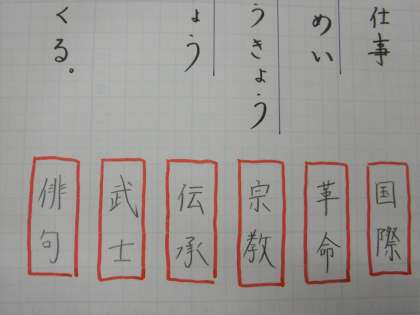 仕事
めい
うきょう
ょう
くる。
国際
革命
宗教
伝承
武士
俳句